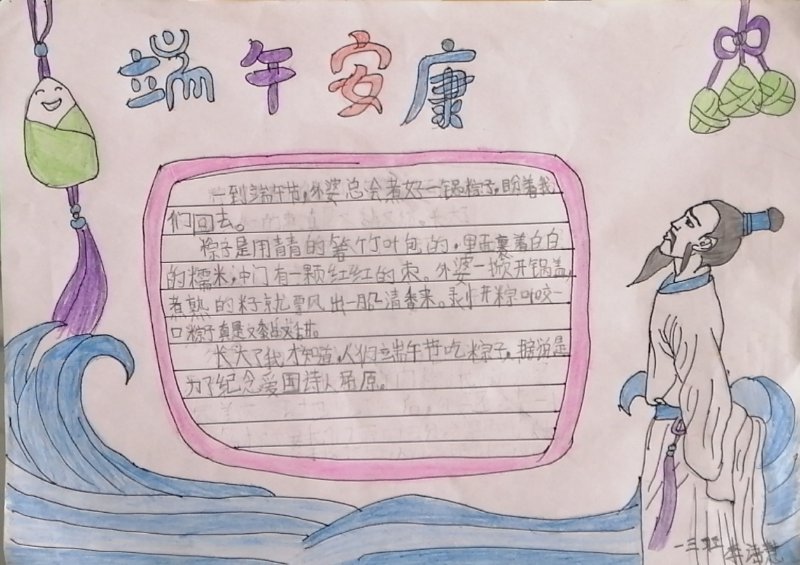 端午安康
一到端午节，外婆总会煮好一锅粽子，盼着我
们回去。
粽子是用青青的箬竹叶包的，里面裹着白白
的糯米，中门有一颗红红的枣。外婆一掀开锅盖，
煮熟的粽子就飘出一股清香来。剥开粽叶咬一
口粽子真是又黏又甜。
长大了我才知道，人们端午节吃粽子，据说是
为了纪念爱国诗人屈原。
一三班